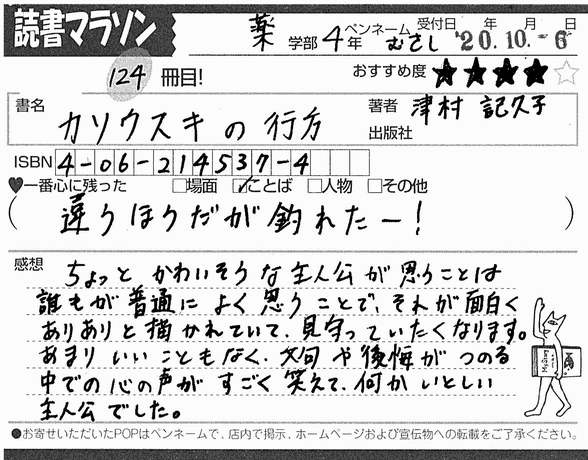 読書マラソン
薬 学部 4年 ペンネーム むさし 受付日 年 月 日 '20.10.-6
124 冊目! おすすめ度 ★★★★☆
書名 カソウスキの行方 著者 津村 記久子
出版社
ISBN 4-06-214537-4
♥一番心に残った □場面 ☑ことば □人物 □その他
(違うほうだが釣れたー!)
感想 ちょっと かわいそうな主人公が思うことは
誰もが普通によく思うことで、それが面白く
ありありと描かれていて、見守っていたくなります。
あまりいいこともなく、文句や後悔がつのる
中での心の声がすごく笑えて、何かいとしい
主人公でした。
●お寄せいただいたPOPはペンネームで、店内で掲示、ホームページおよび宣伝物への転載をご了承ください。